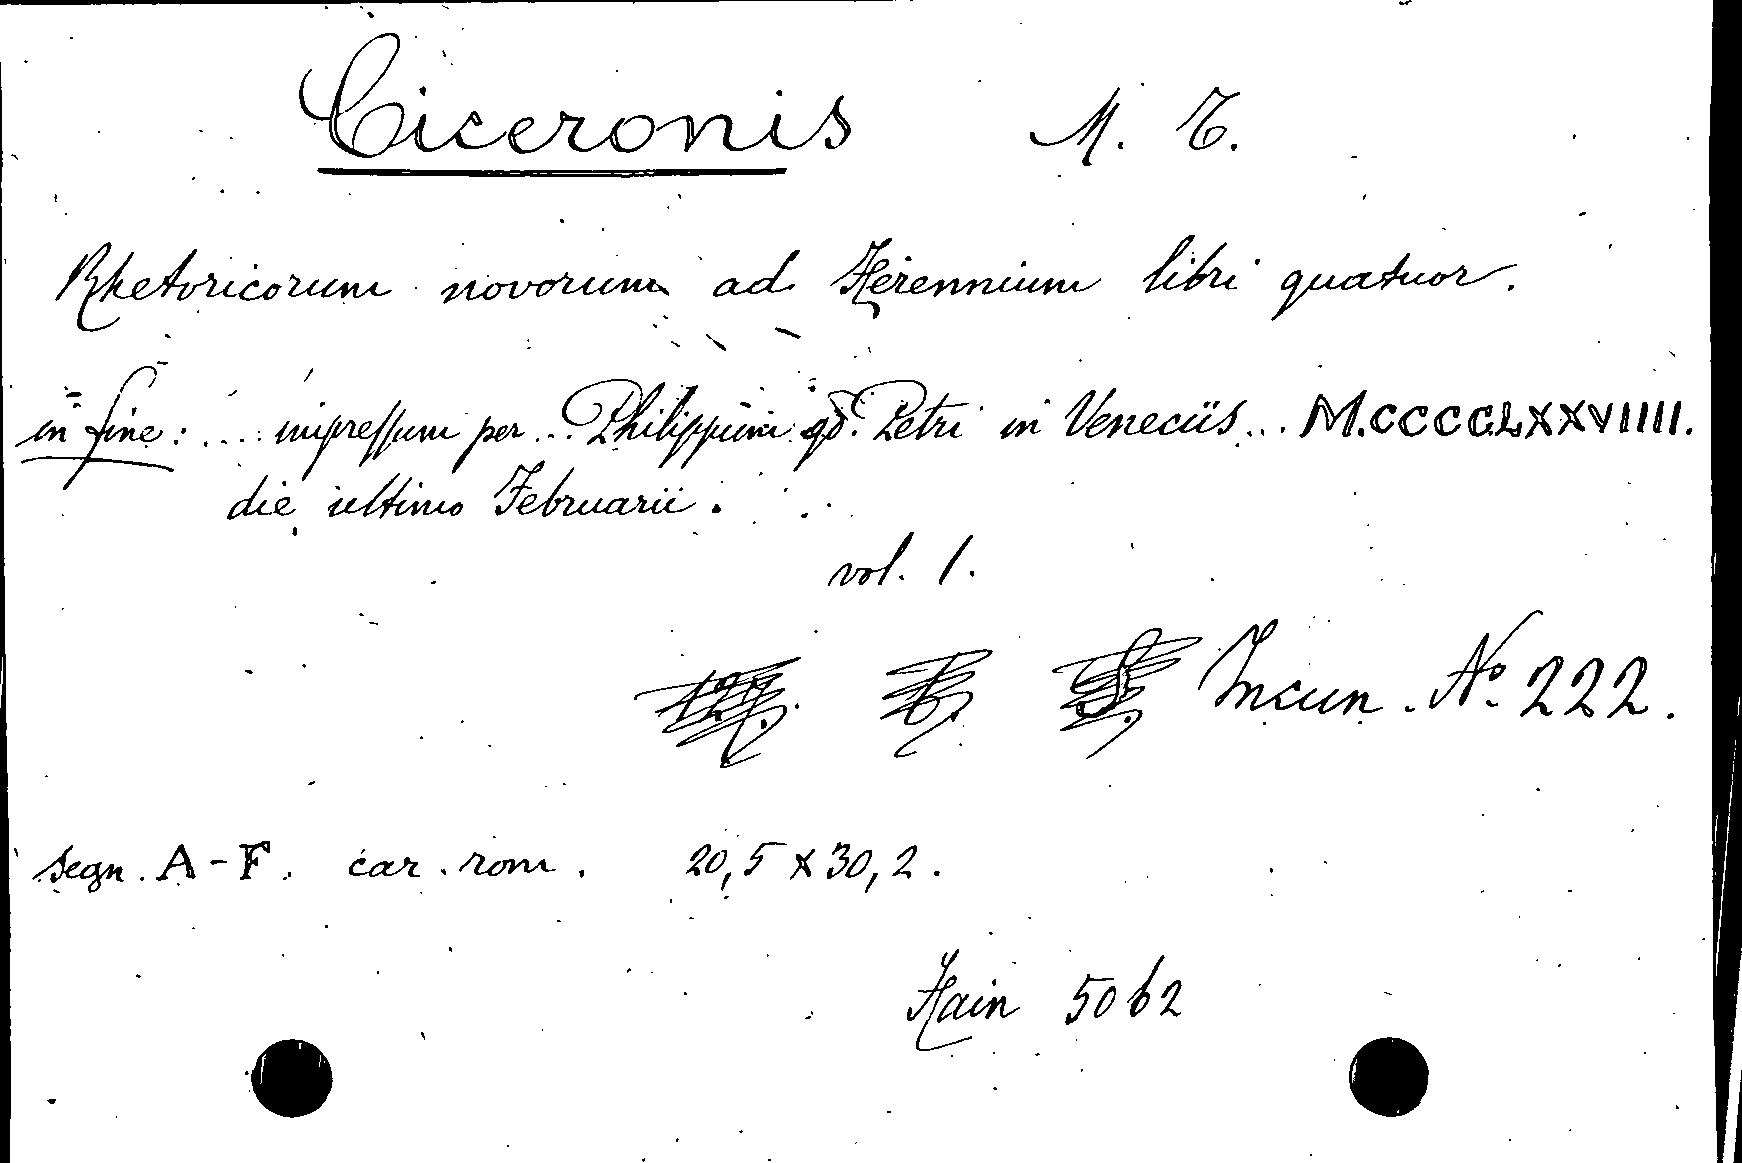 Ciceronis M. T.
Rhetoricorum novorum ad Herennium libri quatuor.
in fine: .... impressum per ... Philippum qd. Petri in Veneciis ... M.CCCCLXXVIIII.
die ultimo Februarii.
vol. 1.
Incun. No. 222.
segn. A-F. car. rom. 20,5 x 30,2.
Hain 5062